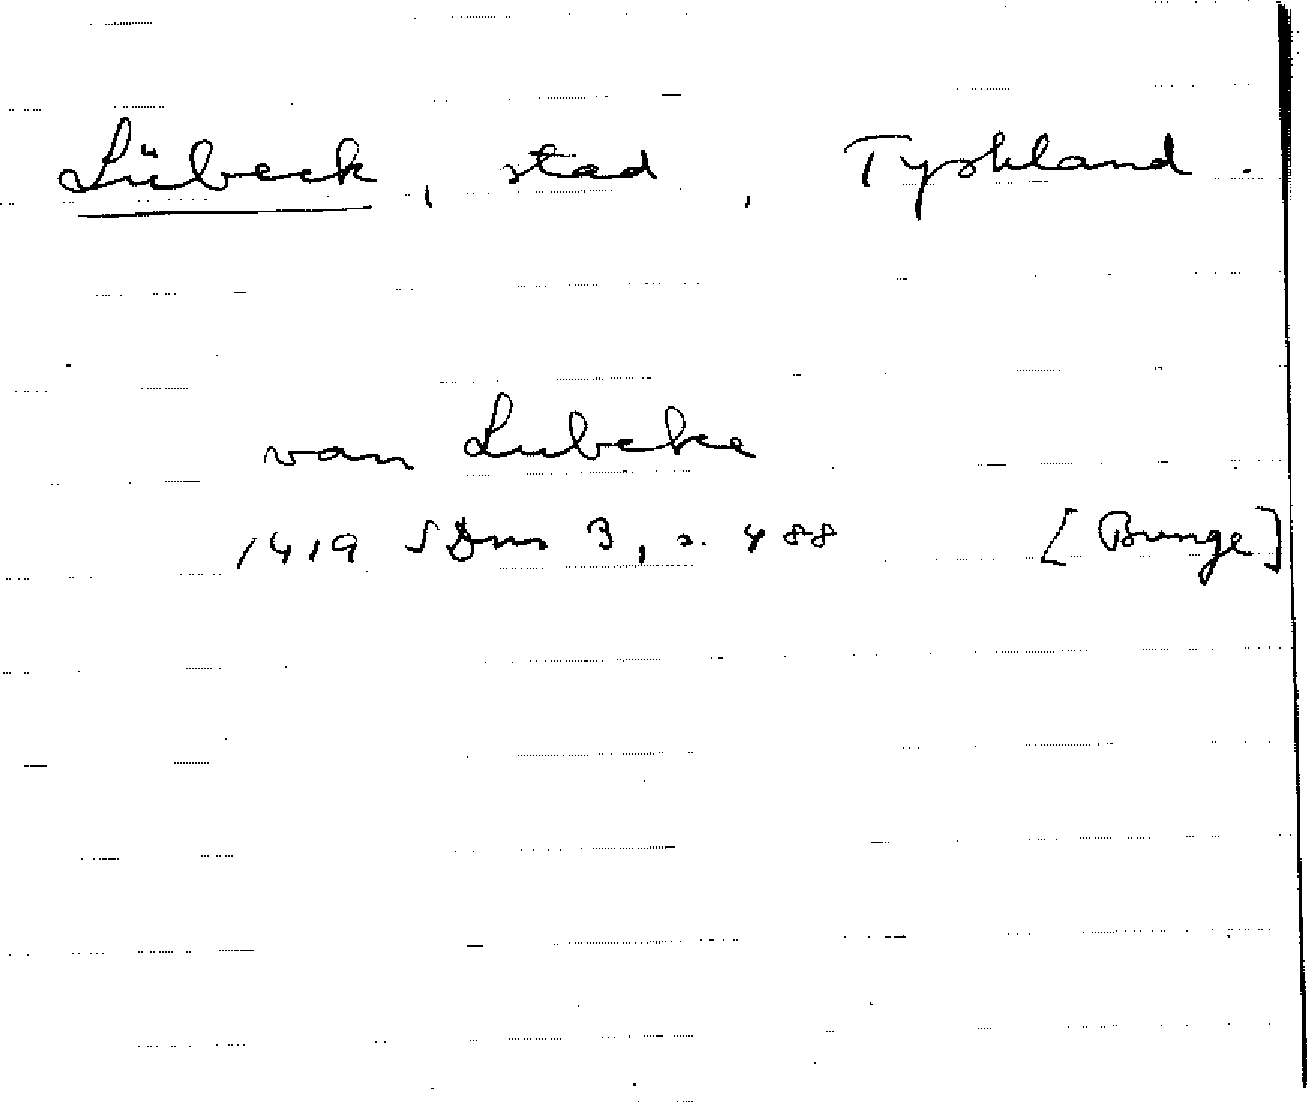 Lübeck, stad, Tyskland.
van Lubeke
1419 SDns 3, s. 488 [Bunge]